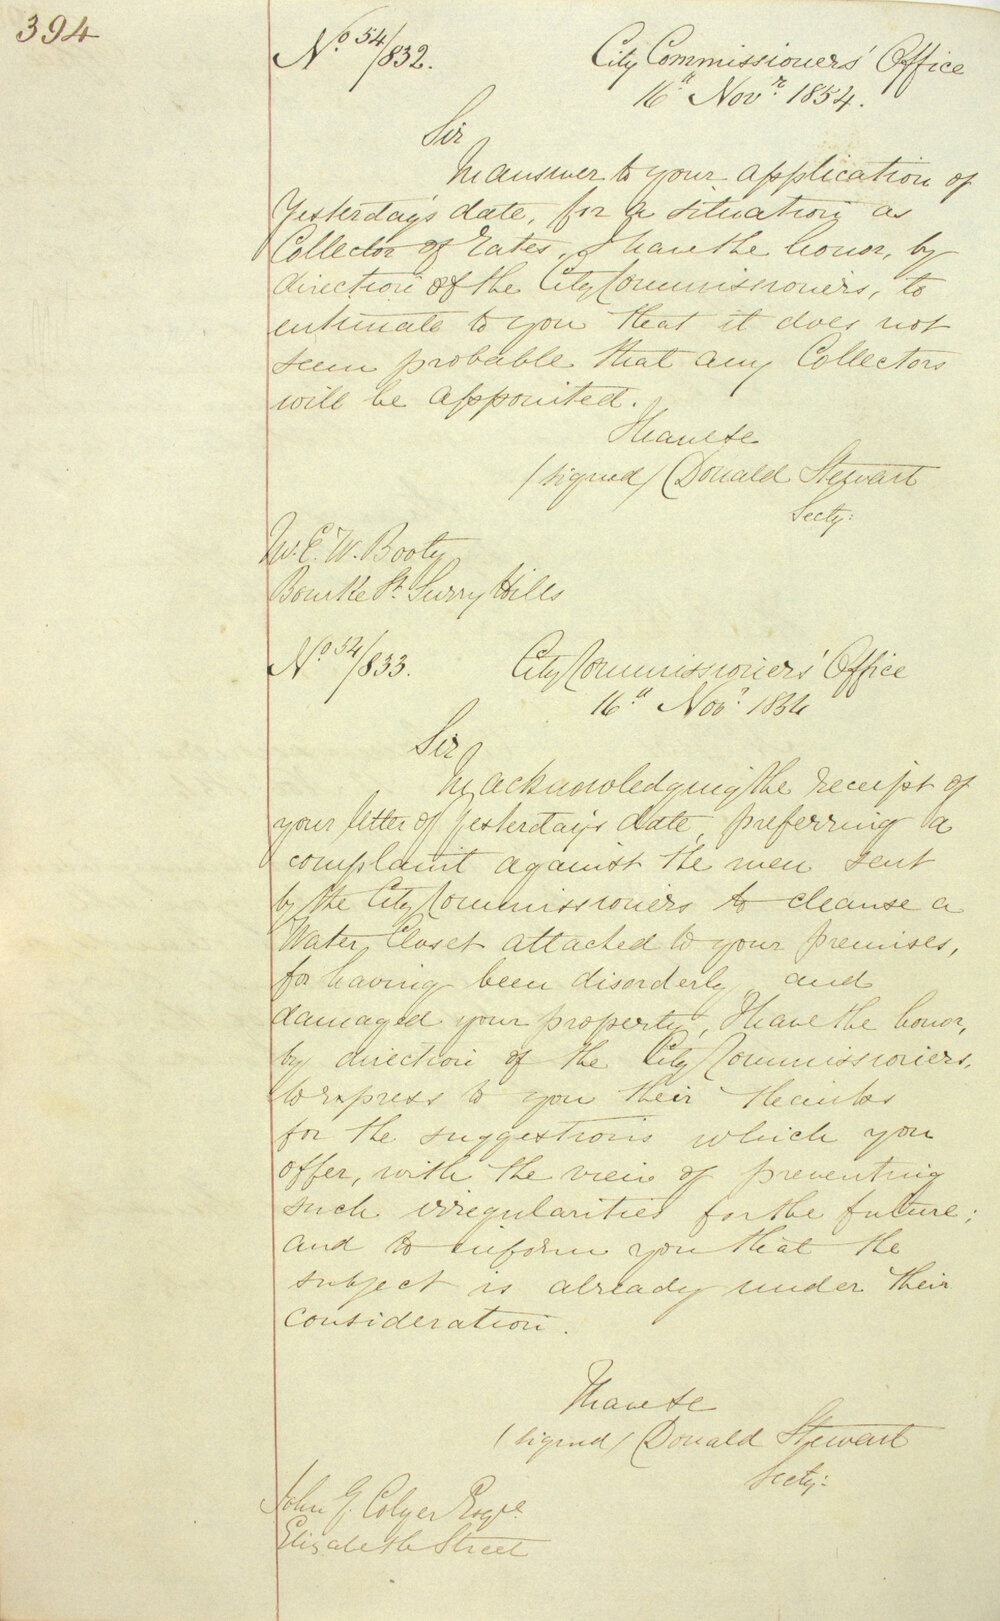 394
No 54/832.
City Commissioners' Office
16th Novr. 1854.
Sir
In answer to your application of
Yesterday's date, for a situation as
Collector of Rates, I have the honor, by
direction of the City Commissioners, to
intimate to you that it does not
seem probable that any Collectors
will be appointed.
I have &c
(signed) Donald Stewart
Secty:
Mr. E. W. Booty
Bourke St. Surry Hills
No 54/833.
City Commissioners' Office
16th Novr. 1854
Sir
In acknowledging the receipt of
your letter of Yesterday's date, preferring a
complaint against the men sent
by the City Commissioners to cleanse a
Water Closet attached to your premises,
for having been disorderly, and
damaged your property, I have the honor,
by direction of the City Commissioners,
to express to you their thanks
for the suggestions which you
offer, with the view of preventing
such irregularities for the future;
and to inform you that the
subject is already under their
consideration.
I have &c
(signed) Donald Stewart
Secty:
John G. Colyer Esqre.
Elizabeth Street